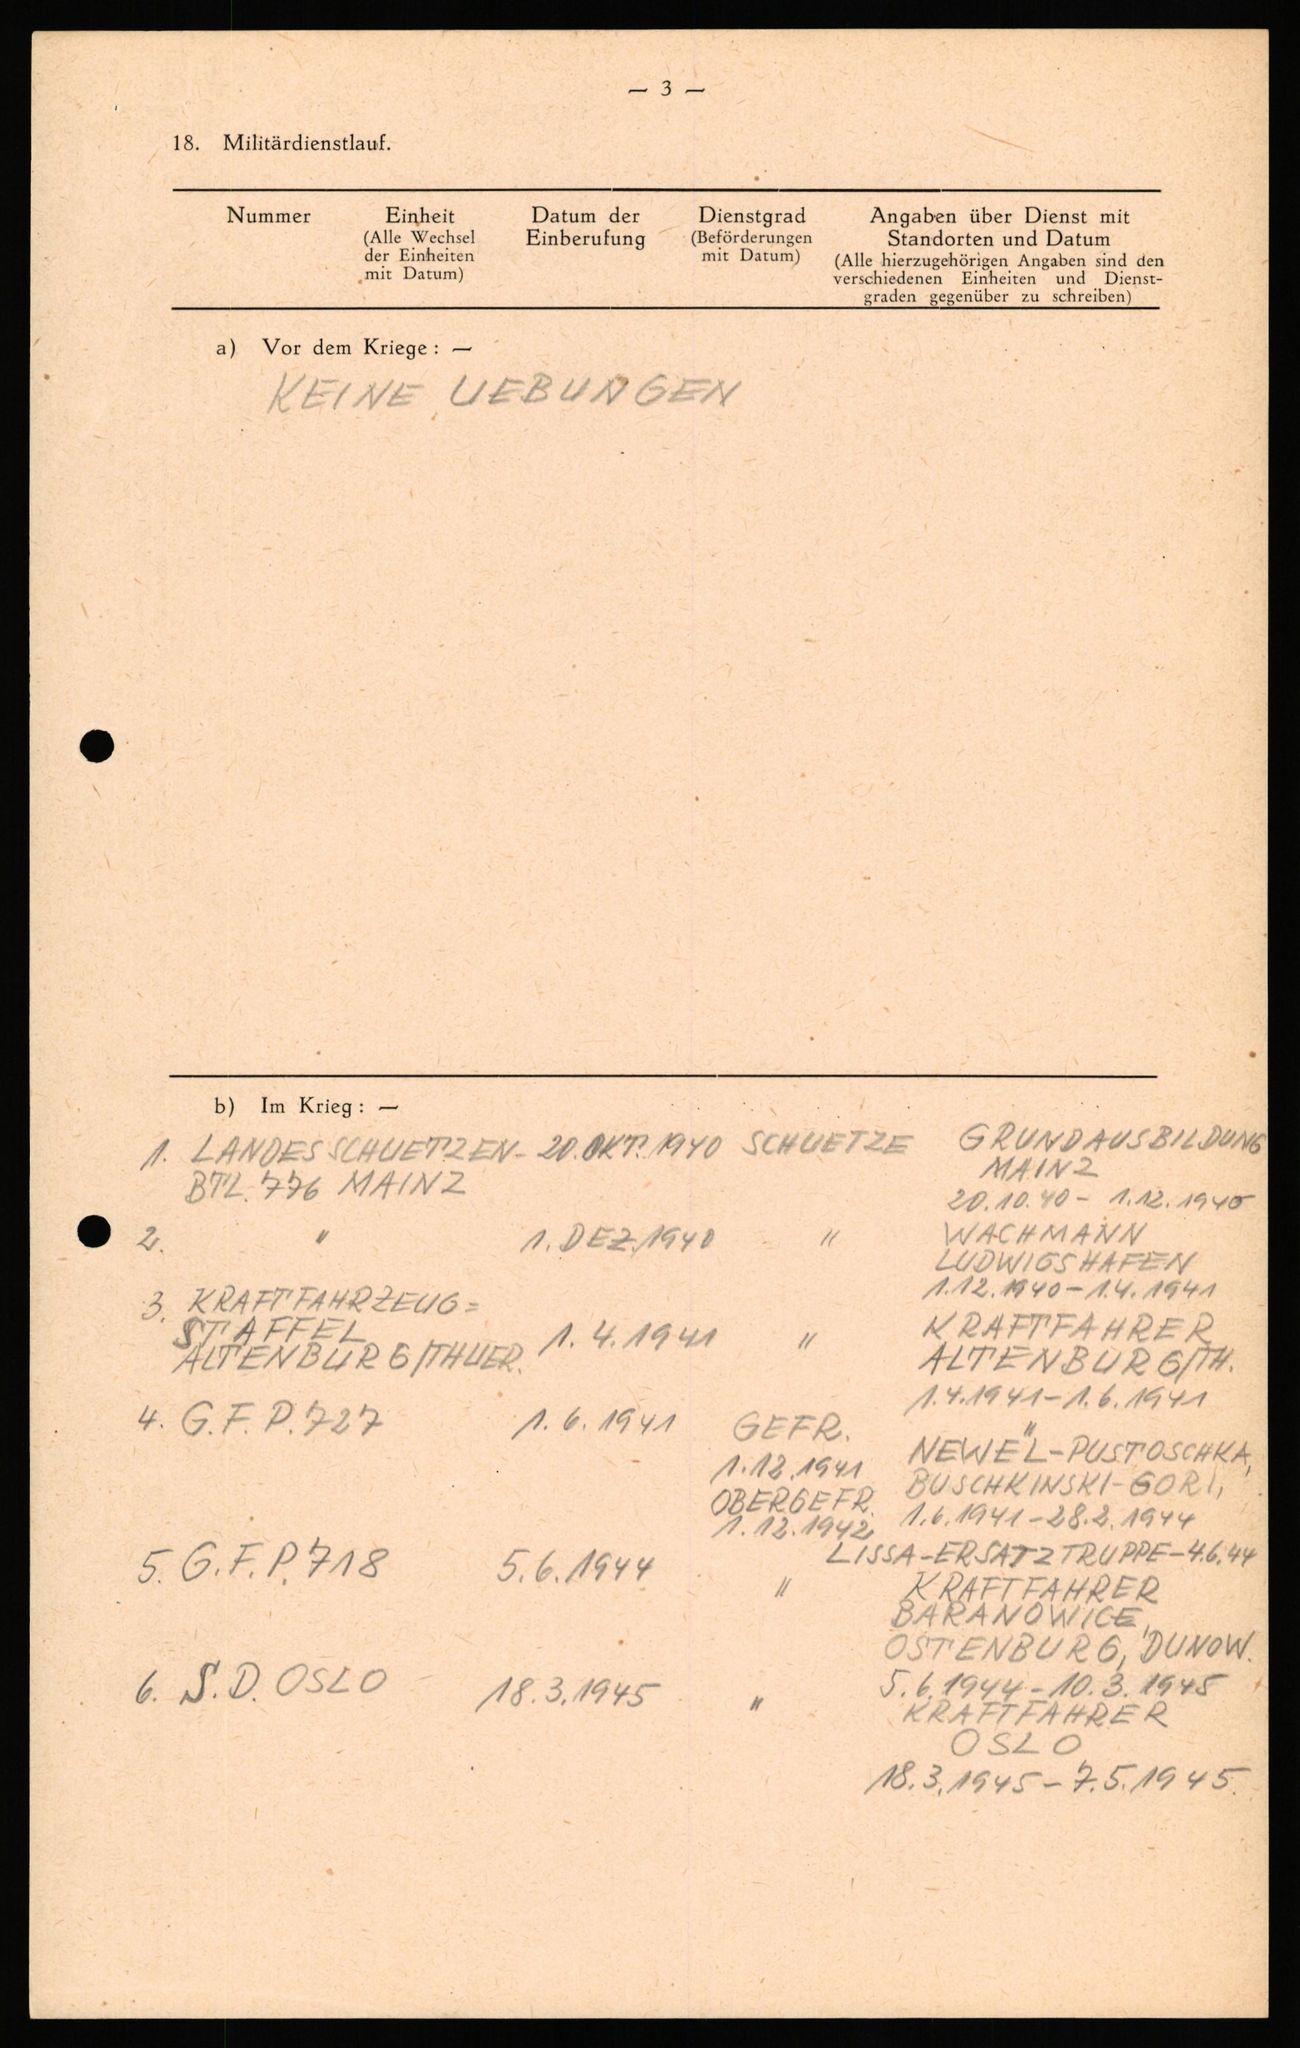 — 3 —
18. Militärdienstlauf.
Nummer
Einheit
(Alle Wechsel
der Einheiten
mit Datum)
Datum der
Einberufung
Dienstgrad
(Beförderungen
mit Datum)
Angaben über Dienst mit
Standorten und Datum
(Alle hierzugehörigen Angaben sind den
verschiedenen Einheiten und Dienst-
graden gegenüber zu schreiben)
a) Vor dem Kriege: —
KEINE UEBUNGEN
b) Im Krieg: —
1. LANDESSCHUETZEN- 20. OKT. 1940 SCHUETZE GRUNDAUSBILDUNG
BTL. 776 MAINZ MAINZ
20.10.40 - 1.12.1940
2. " 1. DEZ. 1940 " WACHMANN
LUDWIGSHAFEN
1.12.1940 - 1.4.1941
3. KRAFTFAHRZEUG=
STAFFEL 1.4.1941 " KRAFTFAHRER
ALTENBURG/THUER. ALTENBURG/TH.
1.4.1941 - 1.6.1941
4. G.F.P. 727 1.6.1941 GEFR. "
1.12.1941 NEWEL-PUSTOSCHKA,
OBERGEFR. BUSCHKINSKI-GORI,
1.12.1942 1.6.1941 - 28.2.1944
LISSA-ERSATZTRUPPE - 4.6.44
5. G.F.P. 718 5.6.1944 " KRAFTFAHRER
BARANOWICE,
OSTENBURG, DUNOW.
5.6.1944 - 10.3.1945
6. S.D. OSLO 18.3.1945 " KRAFTFAHRER
OSLO
18.3.1945 - 7.5.1945.